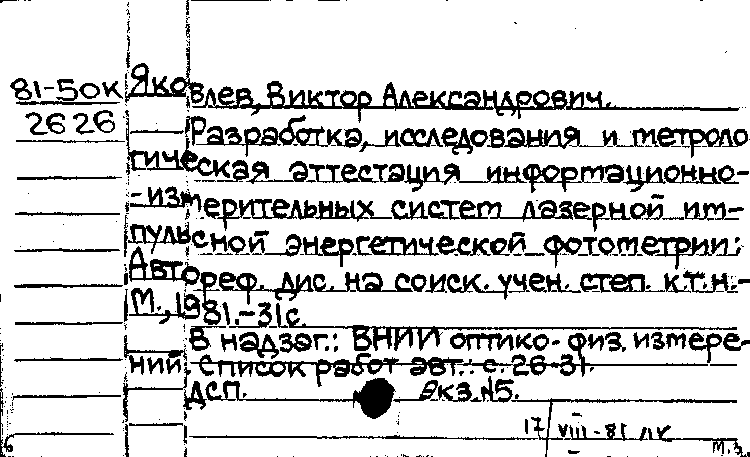 81-50К Яковлев, Виктор Александрович.
2626 Разработка, исследования и метроло
гическая аттестация информационно-
-измерительных систем лазерной им-
пульсной энергетической фотометрии:
Автореф. дис. на соиск. учен. степ. к.т.н.-
М., 1981.-31с.
В надзаг.: ВНИИ оптико-физ. измере-
ний. Список работ авт.: с. 26-31.
ДСП. Экз.№5.
17/VIII-81
6 М.З.